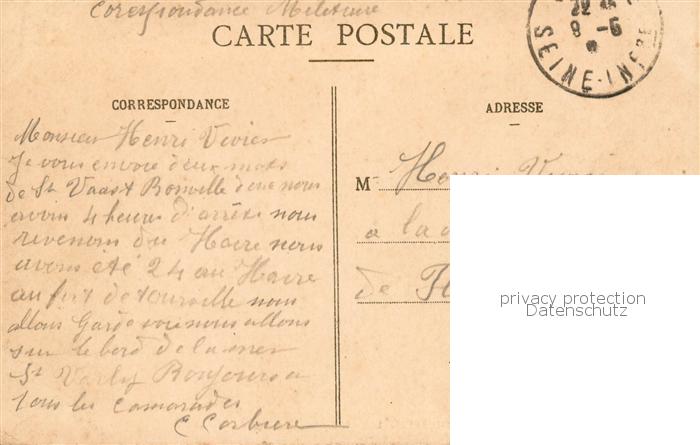 Corespondance Militaire
CARTE POSTALE
22
8 - 6
SEINE-INFRE
CORRESPONDANCE
ADRESSE
Monsieur Henri Vivier
Je vous envoie deux mots
de St Vaast Bonville deux nous
avoir 4 heure d'arrêts nous
revenom du Havre nous
avons été 24 au Havre
au fort de tourville nous
allons Garde nous allons
sur le bord de la mer
St Bonjour a
tous les Camarades
C Corbiere
M Henri
a la
de
privacy protection
Datenschutz